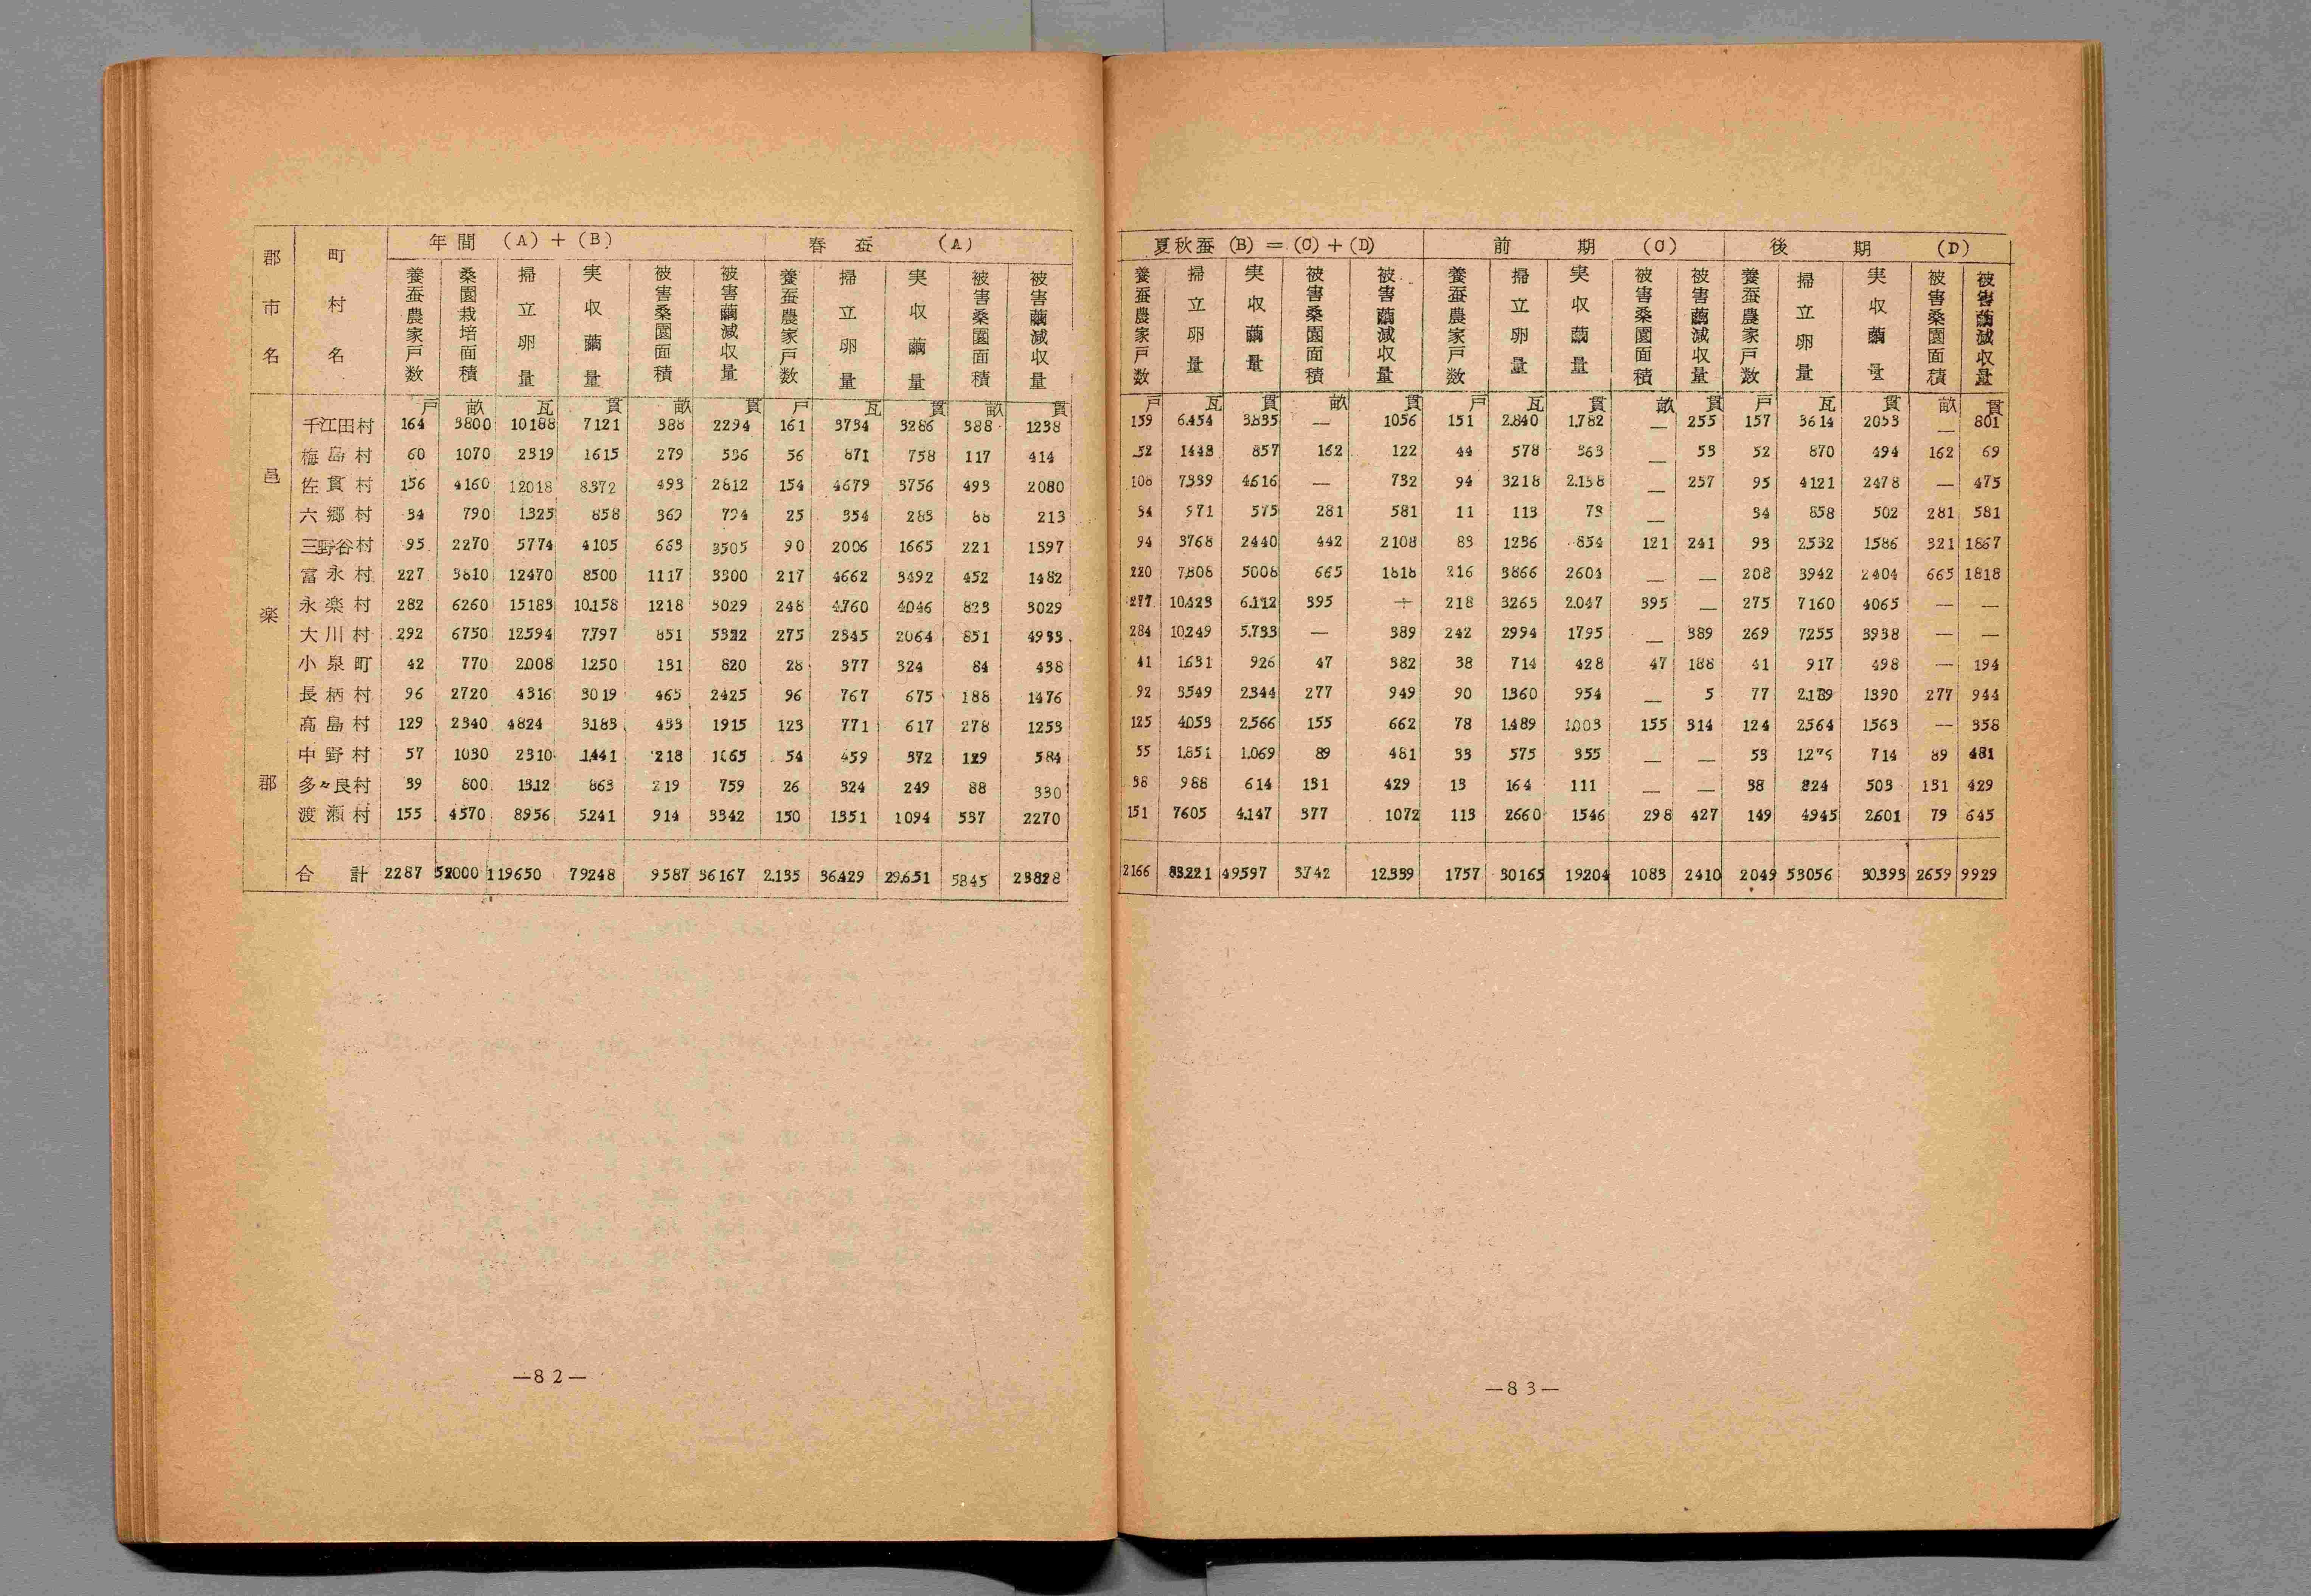 郡市名 町村名 年間 (A)+(B) 春蚕 (A)
養蚕農家戸数 桑園栽培面積 掃立卵量 実収繭量 被害桑園面積 被害繭減収量 養蚕農家戸数 掃立卵量 実収繭量 被害桑園面積 被害繭減収量
戸 畝 瓦 貫 畝 貫 戸 瓦 貫 畝 貫
邑楽郡
千江田村 164 3800 10188 7121 388 2294 161 3734 3286 388 1238
梅島村 60 1070 2319 1615 279 536 56 871 758 117 414
佐貫村 156 4160 12018 8372 493 2812 154 4679 3756 493 2080
六郷村 34 790 1325 858 369 794 25 354 283 88 213
三野谷村 95 2270 5774 4105 663 3505 90 2006 1665 221 1397
富永村 227 3810 12470 8500 1117 3300 217 4662 3492 452 1482
永楽村 282 6260 15183 10.158 1218 3029 248 4.760 4046 823 3029
大川村 292 6750 12594 7.797 851 5322 275 2345 2064 851 4933
小泉町 42 770 2.008 1.250 131 820 28 377 324 84 438
長柄村 96 2720 4316 3019 465 2425 96 767 675 188 1476
高島村 129 2340 4824 3.183 433 1915 123 771 617 278 1253
中野村 57 1030 2310 1.441 218 1065 54 459 372 129 584
多々良村 39 800 1312 863 219 759 26 324 249 88 330
渡瀬村 155 4570 8956 5.241 914 3342 150 1351 1094 537 2270
合計 2287 52000 119650 79248 9587 36167 2.135 36.429 29.651 5845 23828
—82—
夏秋蚕 (B)=(C)+(D) 前期 (C) 後期 (D)
養蚕農家戸数 掃立卵量 実収繭量 被害桑園面積 被害繭減収量 養蚕農家戸数 掃立卵量 実収繭量 被害桑園面積 被害繭減収量 養蚕農家戸数 掃立卵量 実収繭量 被害桑園面積 被害繭減収量
戸 瓦 貫 畝 貫 戸 瓦 貫 畝 貫 戸 瓦 貫 畝 貫
159 6.454 3.835 — 1056 151 2.840 1.782 — 255 157 3614 2053 — 801
52 1448 857 162 122 44 578 363 — 53 52 870 494 162 69
108 7339 4.616 — 732 94 3218 2.138 — 257 95 4121 2478 — 475
34 971 575 281 581 11 113 73 — 34 858 502 281 581
94 3768 2440 442 2108 83 1236 854 121 241 93 2532 1586 321 1867
220 7.808 5008 665 1818 216 3866 2604 — — 208 3942 2404 665 1818
277 10.423 6.112 395 — 218 3263 2.047 395 — 275 7160 4065 — —
284 10.249 5.733 — 389 242 2994 1795 — 389 269 7.255 3938 — —
41 1.631 926 47 382 38 714 428 47 188 41 917 498 — 194
92 3549 2.344 277 949 90 1360 954 — 5 77 2.189 1390 277 944
125 4053 2.566 155 662 78 1.489 1.003 155 314 124 2564 1,563 — 358
55 1.851 1.069 89 481 33 575 355 — — 53 714 89 481
38 988 614 131 429 13 164 111 — — 38 824 503 131 429
151 7605 4.147 377 1072 113 2660 1546 298 427 149 4945 2.601 79 645
2166 83.221 49597 3.742 12.339 1757 30165 19204 1083 2410 2049 53056 30.393 2659 9929
—83—